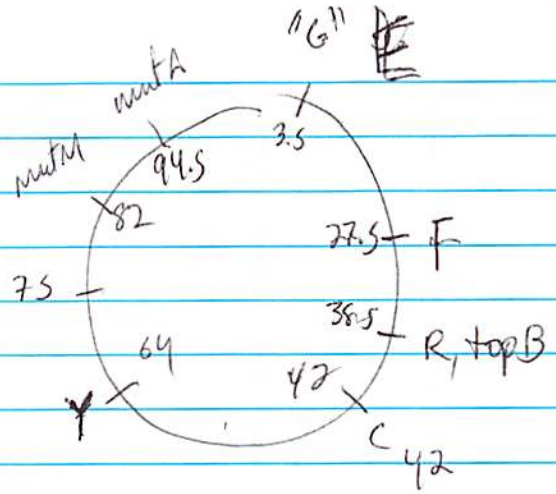 "G" E
mutA
3.5
mutM
94.5
82
27.5 F
75
38.5
R, topB
64
42
Y
C
42